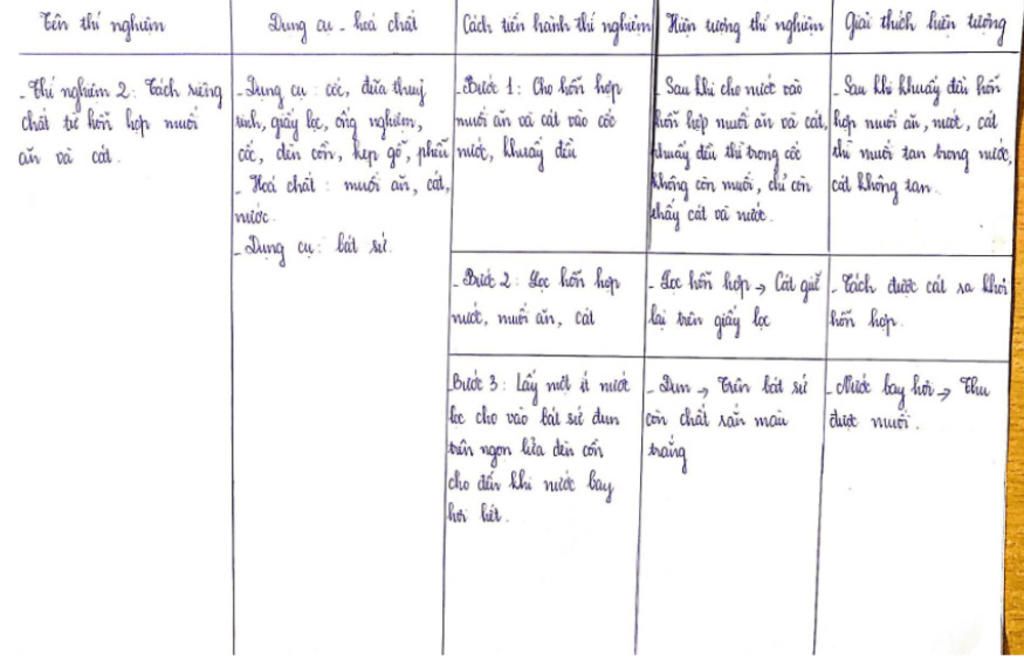 Tên thí nghiệm
Dụng cụ - hoá chất
Cách tiến hành thí nghiệm
Hiện tượng thí nghiệm
Giải thích hiện tượng
- Thí nghiệm 2: Tách riêng
chất từ hỗn hợp muối
ăn và cát.
- Dụng cụ: cốc, đũa thuỷ
tinh, giấy lọc, ống nghiệm,
cốc, đèn cồn, kẹp gỗ, phễu
- Hoá chất: muối ăn, cát,
nước.
- Dụng cụ: bát sứ.
- Bước 1: Cho hỗn hợp
muối ăn và cát vào cốc
nước, khuấy đều
- Sau khi cho nước vào
hỗn hợp muối ăn và cát,
khuấy đều thì trong cốc
không còn muối, chỉ còn
thấy cát và nước.
- Sau khi khuấy đều hỗn
hợp muối ăn, nước, cát
thì muối tan trong nước,
cát không tan.
- Bước 2: Lọc hỗn hợp
nước, muối ăn, cát
- Lọc hỗn hợp → Cát giữ
lại trên giấy lọc
- Tách được cát ra khỏi
hỗn hợp.
- Bước 3: Lấy một ít nước
lọc cho vào bát sứ đun
trên ngọn lửa đèn cồn
cho đến khi nước bay
hơi hết.
- Đun → Trên bát sứ
còn chất rắn màu
trắng
- Nước bay hơi → Thu
được muối.